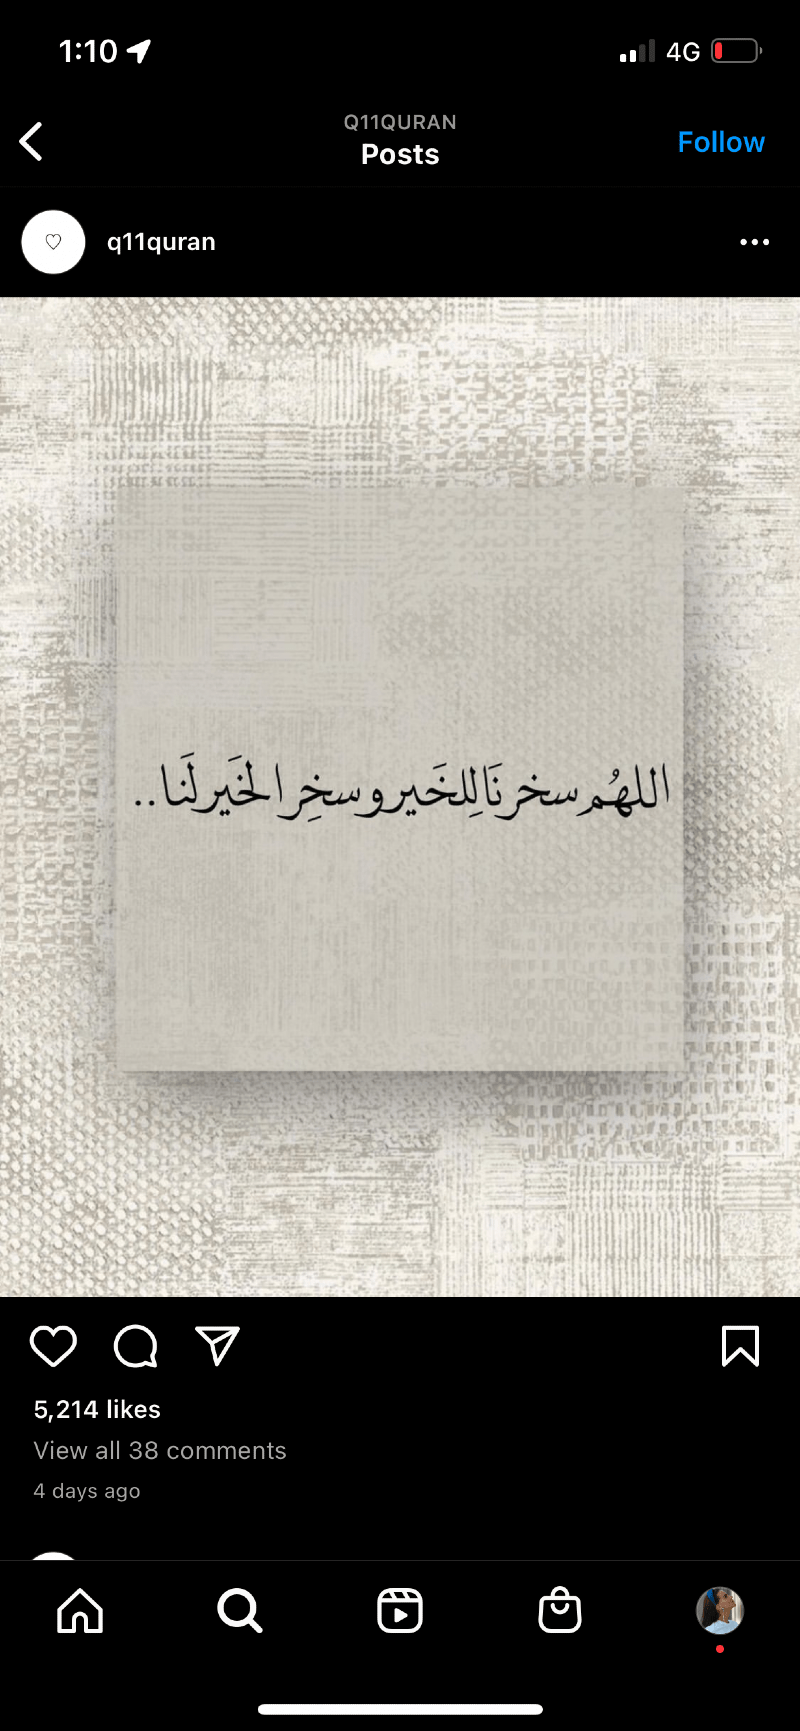 1:10
4G
Q11QURAN
Posts
Follow
q11quran
اللهُم سخرنَا لِلخَير و سخِر الخَير لَنا..
5,214 likes
View all 38 comments
4 days ago